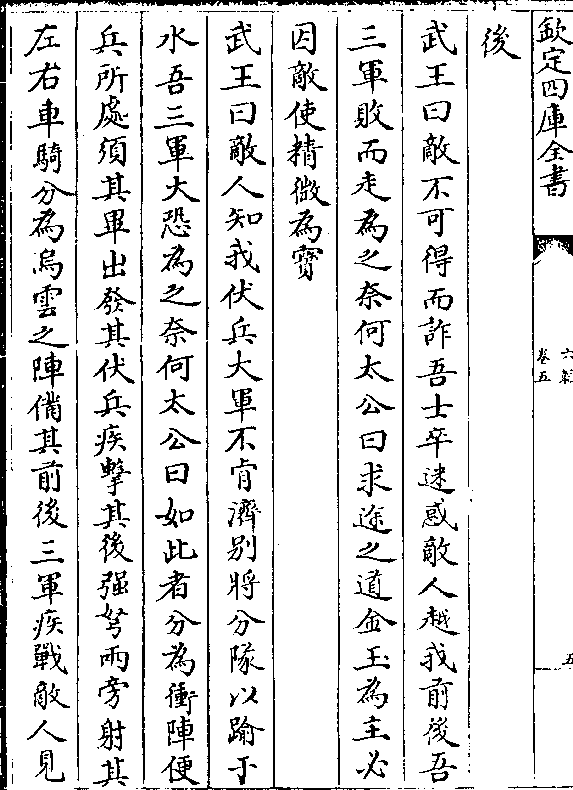 欽定四庫全書
六韜
卷五
五
後
武王曰敵不可得而詐吾士卒迷惑敵人越我前後吾
三軍敗而走為之奈何太公曰求途之道金玉為主必
因敵使精微為寳
武王曰敵人知我伏兵大軍不肯濟别將分隊以踰于
水吾三軍大恐為之奈何太公曰如此者分為衝陣便
兵所處須其畢出發其伏兵疾擊其後强弩兩旁射其
左右車騎分為烏雲之陣備其前後三軍疾戰敵人見